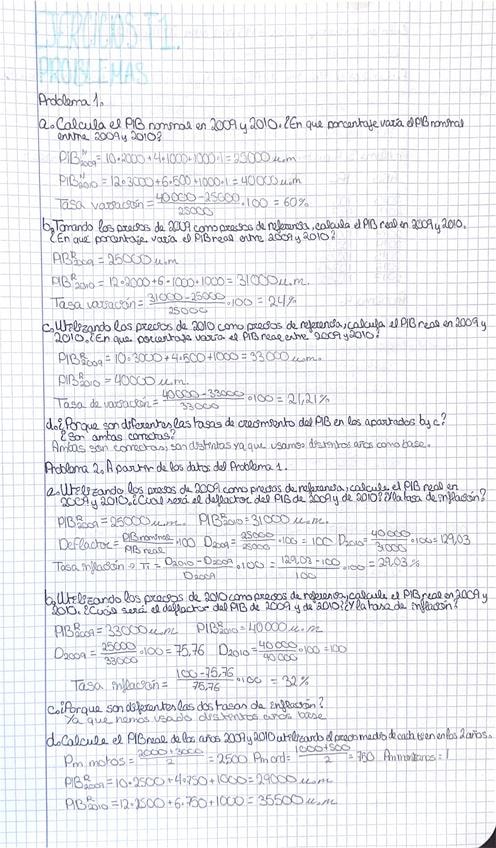 EJERCICIOS T1.
PROBLEMAS
Problema 1.
a. Calcula el PIB nominal en 2009 y 2010. ¿En que porcentaje varía el PIB nominal
entre 2009 y 2010?
PIB^N_2009 = 10·2000+4·1000+1000·1 = 25000 u.m
PIB^N_2010 = 12·3000+6·500+1000·1 = 40000 u.m
Tasa variación = (40000-25000)/25000 · 100 = 60%
b. Tomando los precios de 2009 como precios de referencia, calcula el PIB real en 2009 y 2010.
¿En que porcentaje varía el PIB real entre 2009 y 2010?
PIB^R_2009 = 25000 u.m
PIB^R_2010 = 12·2000+6·1000+1000 = 31000 u.m.
Tasa variación = (31000-25000)/25000 · 100 = 24%
c. Utilizando los precios de 2010 como precios de referencia, calcula el PIB real en 2009 y
2010. ¿En que porcentaje varía el PIB real entre 2009 y 2010?
PIB^R_2009 = 10·3000+4·500+1000 = 33000 u.m.
PIB^R_2010 = 40000 u.m.
Tasa de variación = (40000-33000)/33000 · 100 = 21,21%
d. ¿Porque son diferentes las tasas de crecimiento del PIB en los apartados b y c?
¿Son ambas correctas?
Ambas son correctas, son distintas ya que usamos distintos años como base.
Problema 2. A partir de los datos del Problema 1.
a. Utilizando los precios de 2009 como precios de referencia, calcule el PIB real en
2009 y 2010. ¿Cuál será el deflactor del PIB de 2009 y de 2010? ¿Y la tasa de inflación?
PIB^R_2009 = 25000 u.m. PIB^R_2010 = 31000 u.m.
Deflactor = PIB nominal/PIB real · 100 D2009 = 25000/25000 · 100 = 100 D2010 = 40000/31000 · 100 = 129,03
Tasa inflación → π = (D2010 - D2009)/D2009 · 100 = (129,03-100)/100 · 100 = 29,03%
b. Utilizando los precios de 2010 como precios de referencia, calcule el PIB real en 2009 y
2010. ¿Cuál será el deflactor del PIB de 2009 y de 2010? ¿Y la tasa de inflación?
PIB^R_2009 = 33000 u.m PIB^R_2010 = 40000 u.m.
D2009 = 25000/33000 · 100 = 75,76 D2010 = 40000/40000 · 100 = 100
Tasa inflación = (100-75,76)/75,76 · 100 = 32%
c. ¿Porque son diferentes las dos tasas de inflación?
Ya que hemos usado distintos años base
d. Calcule el PIB real de los años 2009 y 2010 utilizando el precio medio de cada bien en los 2 años.
Pm motos = (2000+3000)/2 = 2500 Pm ord = (1000+500)/2 = 750 = 1
PIB^R_2009 = 10·2500+4·750+1000 = 29000 u.m
PIB^R_2010 = 12·2500+6·750+1000 = 35500 u.m